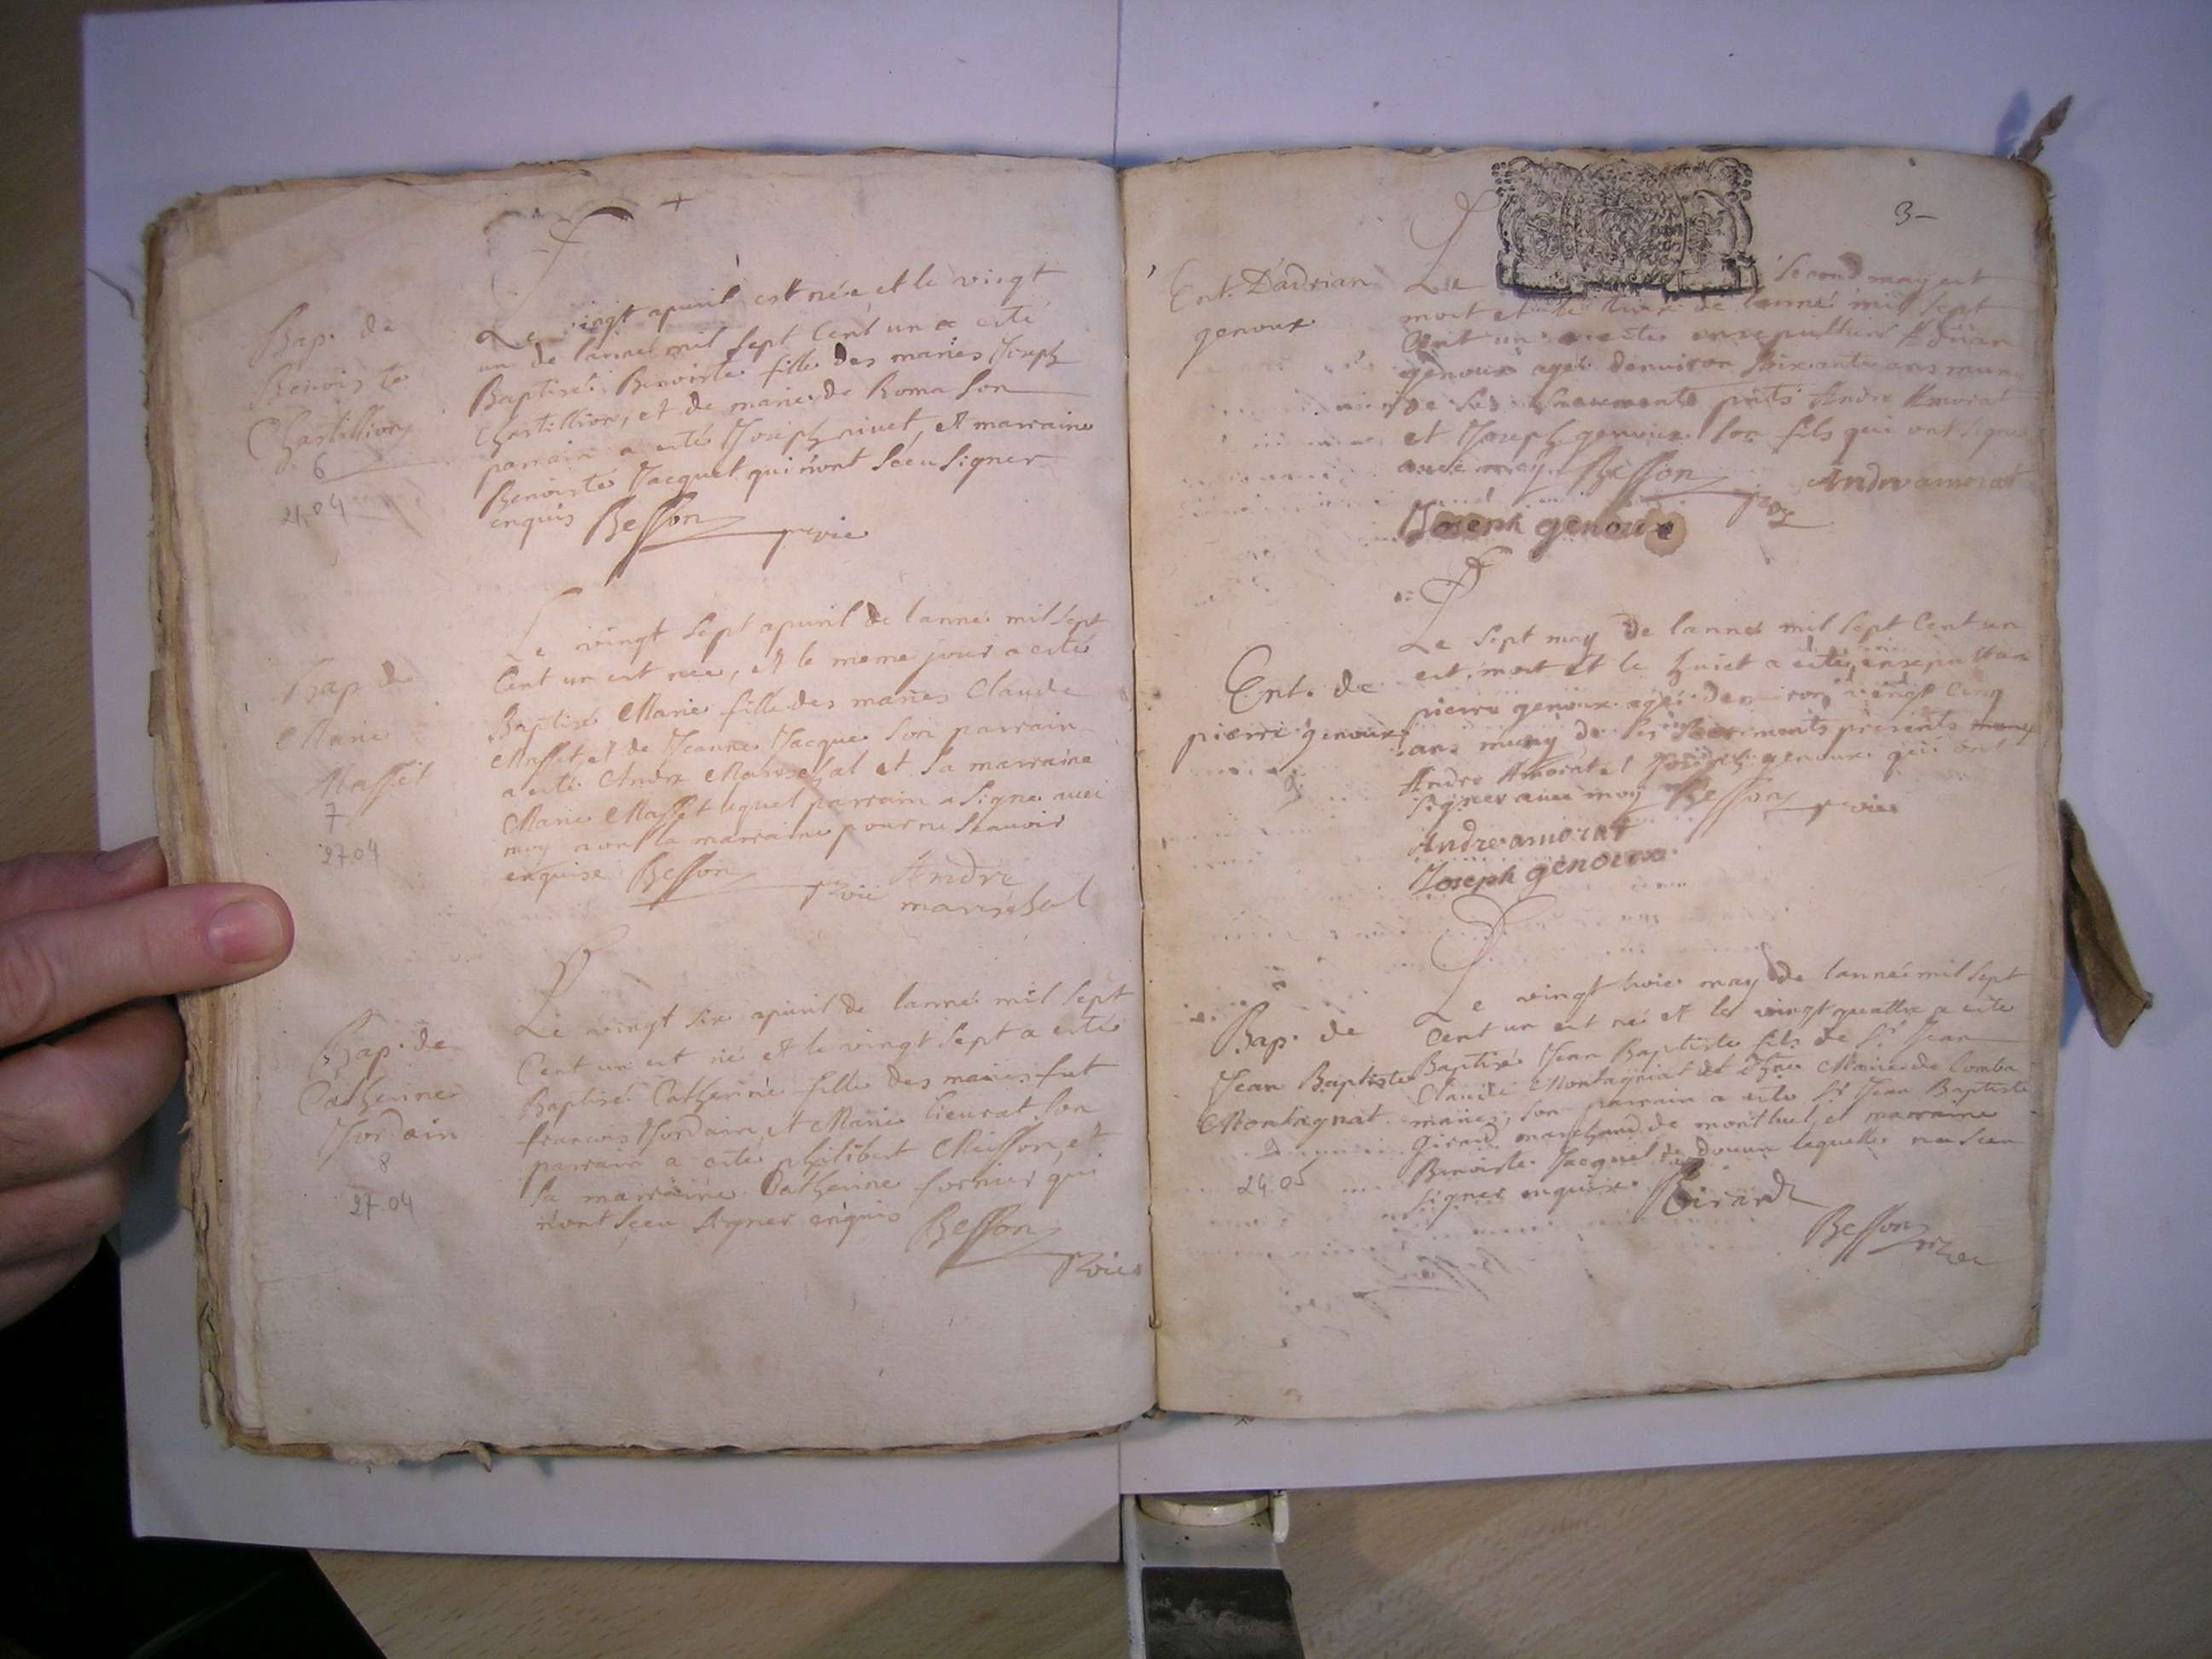 +
Bap. de
Benoiste
Chastillion
6
21.04
Le vingt apuril est née et le vingt
un de lanneé mil sept Cent un a esté
Baptiseé Benoiste fille des mariés Joseph
Chastillion, et de marie de Roma son
parrain a esté Joseph nivet, et marraine
Benoiste Jacquet qui n'ont sceu signer
enquis Besson
vic
Bap. de
Marie
Masset
7
27.04
Le vingt sept apuril de lanneé mil sept
Cent un est nee, et le meme jour a esté
Baptisé Marie fille des mariés Claude
Masset et de Jeanne Jacques son parrain
a esté Andre Mareschal et sa marraine
Marie Masset lequel parrain a signé avec
moy non la marraine pour ne scavoir
enquise Besson
vic
Andre
mareshal
Bap. de
Catherine
Jordain
8
27.04
Le vingt six apuril de lanneé mil sept
Cent un est né et le vingt sept a esté
Baptiseé Catherine fille des mariés
francois Jordain et Marie Lieurat son
parrain a esté philibert Meisson, et
sa marraine Catherine fornier qui
n'ont sceu signer enquis Besson
vic
3-
Ent. D'adrian
genoux
Le second may est
mort et le de lanneé mil sept
Cent un a esté Adrian
genoux agé denviron soixante ans muny
de ses sacrements pnts Andre Amorat
et Joseph genoux son fils qui ont signé
avec moy. Besson
Andre amorat
Joseph genoux
Ent. de
pierre genoux
Le sept may de lanneé mil sept Cent un
est mort et le huict a esté
pierre genoux agé denviron vingt cinq
ans muny de ses sacrements presents
Andre Amorat et Joseph genoux qui ont
signer avec moy Besson
vic
Andre amorat
Joseph genoux
Bap. de
Jean Baptiste
Montagnat
9
24 05
Le vingt trois may de lanneé mil sept
Cent un est né et le vingt quattre a esté
Baptisé Jean Baptiste fils de Sr Jean
Claude Montagniat et Marie de Comba
mariés, son parrain a esté Sr Jean Baptiste
Girard marchand de montluel et marraine
Benoiste Jacquet laquelle na sceu
signer enquise. Girard
Besson